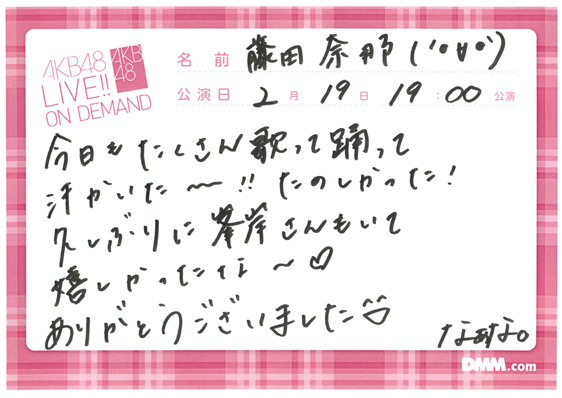 AKB48
LIVE!!
ON DEMAND
AKB
48
名前 藤田奈那('∀')
公演日 2月19日 19:00 公演
今日もたくさん歌って踊って
汗かいた〜!! たのしかった!
久しぶりに峯岸さんもいて
嬉しかったな〜♡
ありがとうございました
なぁな。
DMM.com